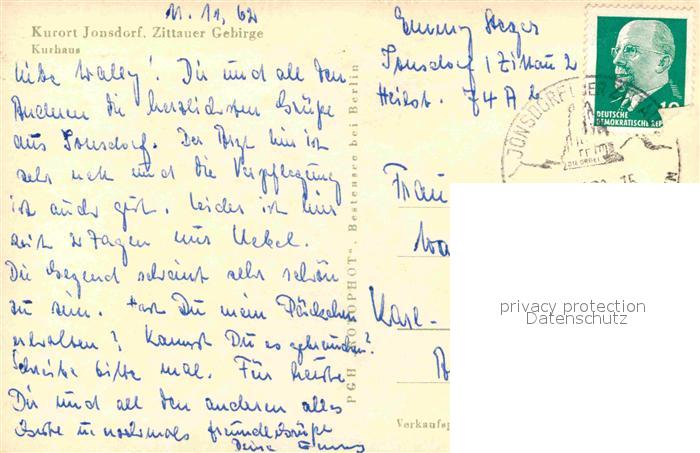 11. 11. 62
Kurort Jonsdorf, Zittauer Gebirge
Kurhaus
Liebe Wally! Dir und all den
Anderen die herzlichsten Grüße
aus Jonsdorf. Der Arzt hier ist
sehr nett und die Verpflegung
ist auch gut. Leider ist hier
seit 2 Tagen nur Nebel.
Die Gegend scheint sehr schön
zu sein. Hast Du mein Päckchen
erhalten? Kannst Du es gebrauchen?
Schreibe bitte mal. Für heute
Dir und all den anderen alles
Gute u. nochmals freundl. Grüße
Deine Emmy
PGH "ROTOPHOT", Bestensee bei Berlin
Emmy
Jonsdorf / Zittau 2
Heilst. 74 A b
DEUTSCHE
DEMOKRATISCHE REP
10
JONSDORF
Frau
Karl-
Verkaufsp
privacy protection
Datenschutz